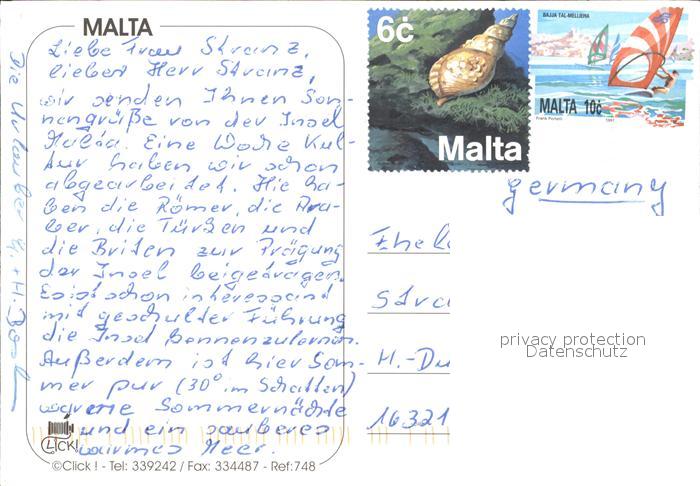 MALTA
Liebe Frau Stranz,
lieber Herr Stranz,
wir senden Ihnen Son-
nengrüße von der Insel
Malta. Eine Woche Kul-
tur haben wir schon
abgearbeitet. Hie ha-
ben die Römer, die Ara-
ber, die Türken und
die Briten zur Prägung
der Insel beigetragen.
Es ist schon interessant
mit geschulter Führung
die Insel kennenzulernen.
Außerdem ist hier Som-
mer pur (30° im Schatten)
warme Sommernächte
und ein sauberes
warmes Meer.
Die Urlauber
CLICK!
©Click ! - Tel: 339242 / Fax: 334487 - Ref:748
6ċ
Malta
BAJJA TAL-MELLIEĦA
MALTA 10ċ
Frank Portelli 1991
Germany
Ehel
Stra
H.-Du
16321
privacy protection
Datenschutz